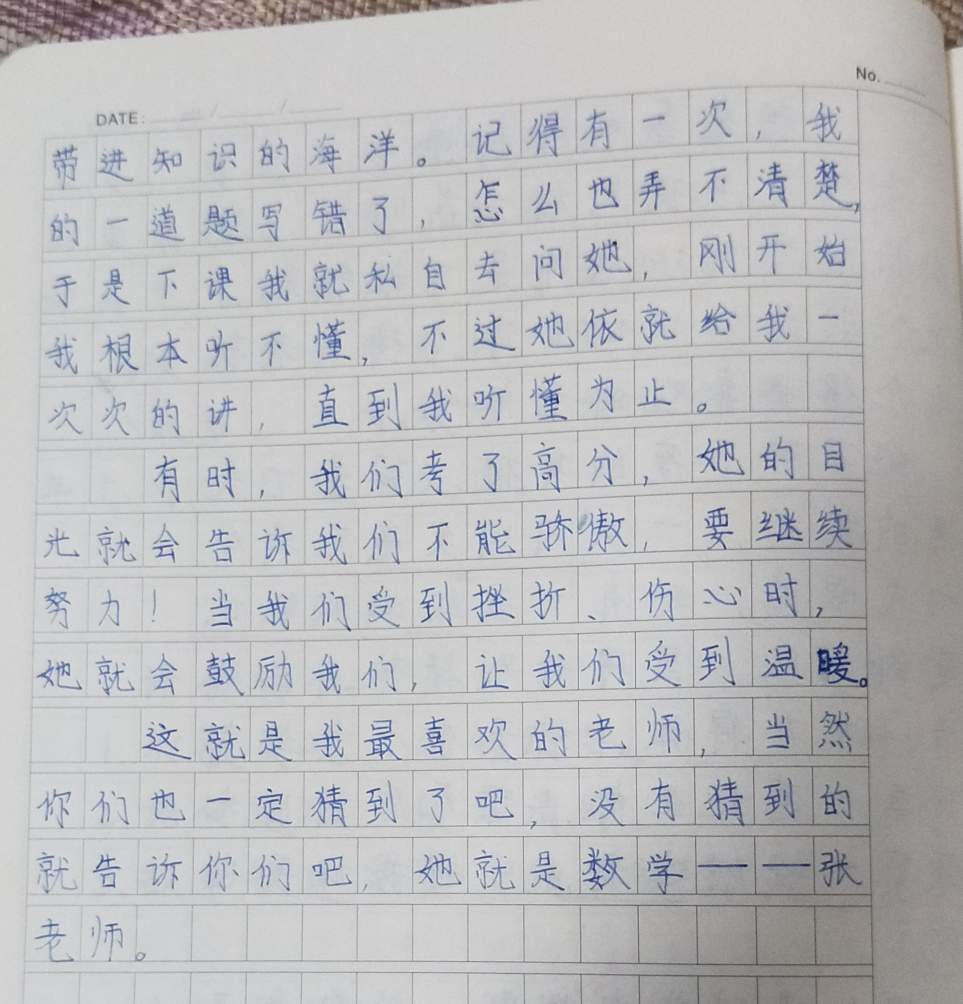 No.
DATE: / /
带进知识的海洋。记得有一次，我
的一道题写错了，怎么也弄不清楚，
于是下课我就私自去问她，刚开始
我根本听不懂，不过她依就给我一
次次的讲，直到我听懂为止。
有时，我们考了高分，她的目
光就会告诉我们不能骄傲，要继续
努力！当我们受到挫折、伤心时，
她就会鼓励我们，让我们受到温暖。
这就是我最喜欢的老师，当然
你们也一定猜到了吧，没有猜到的
就告诉你们吧，她就是数学——张
老师。